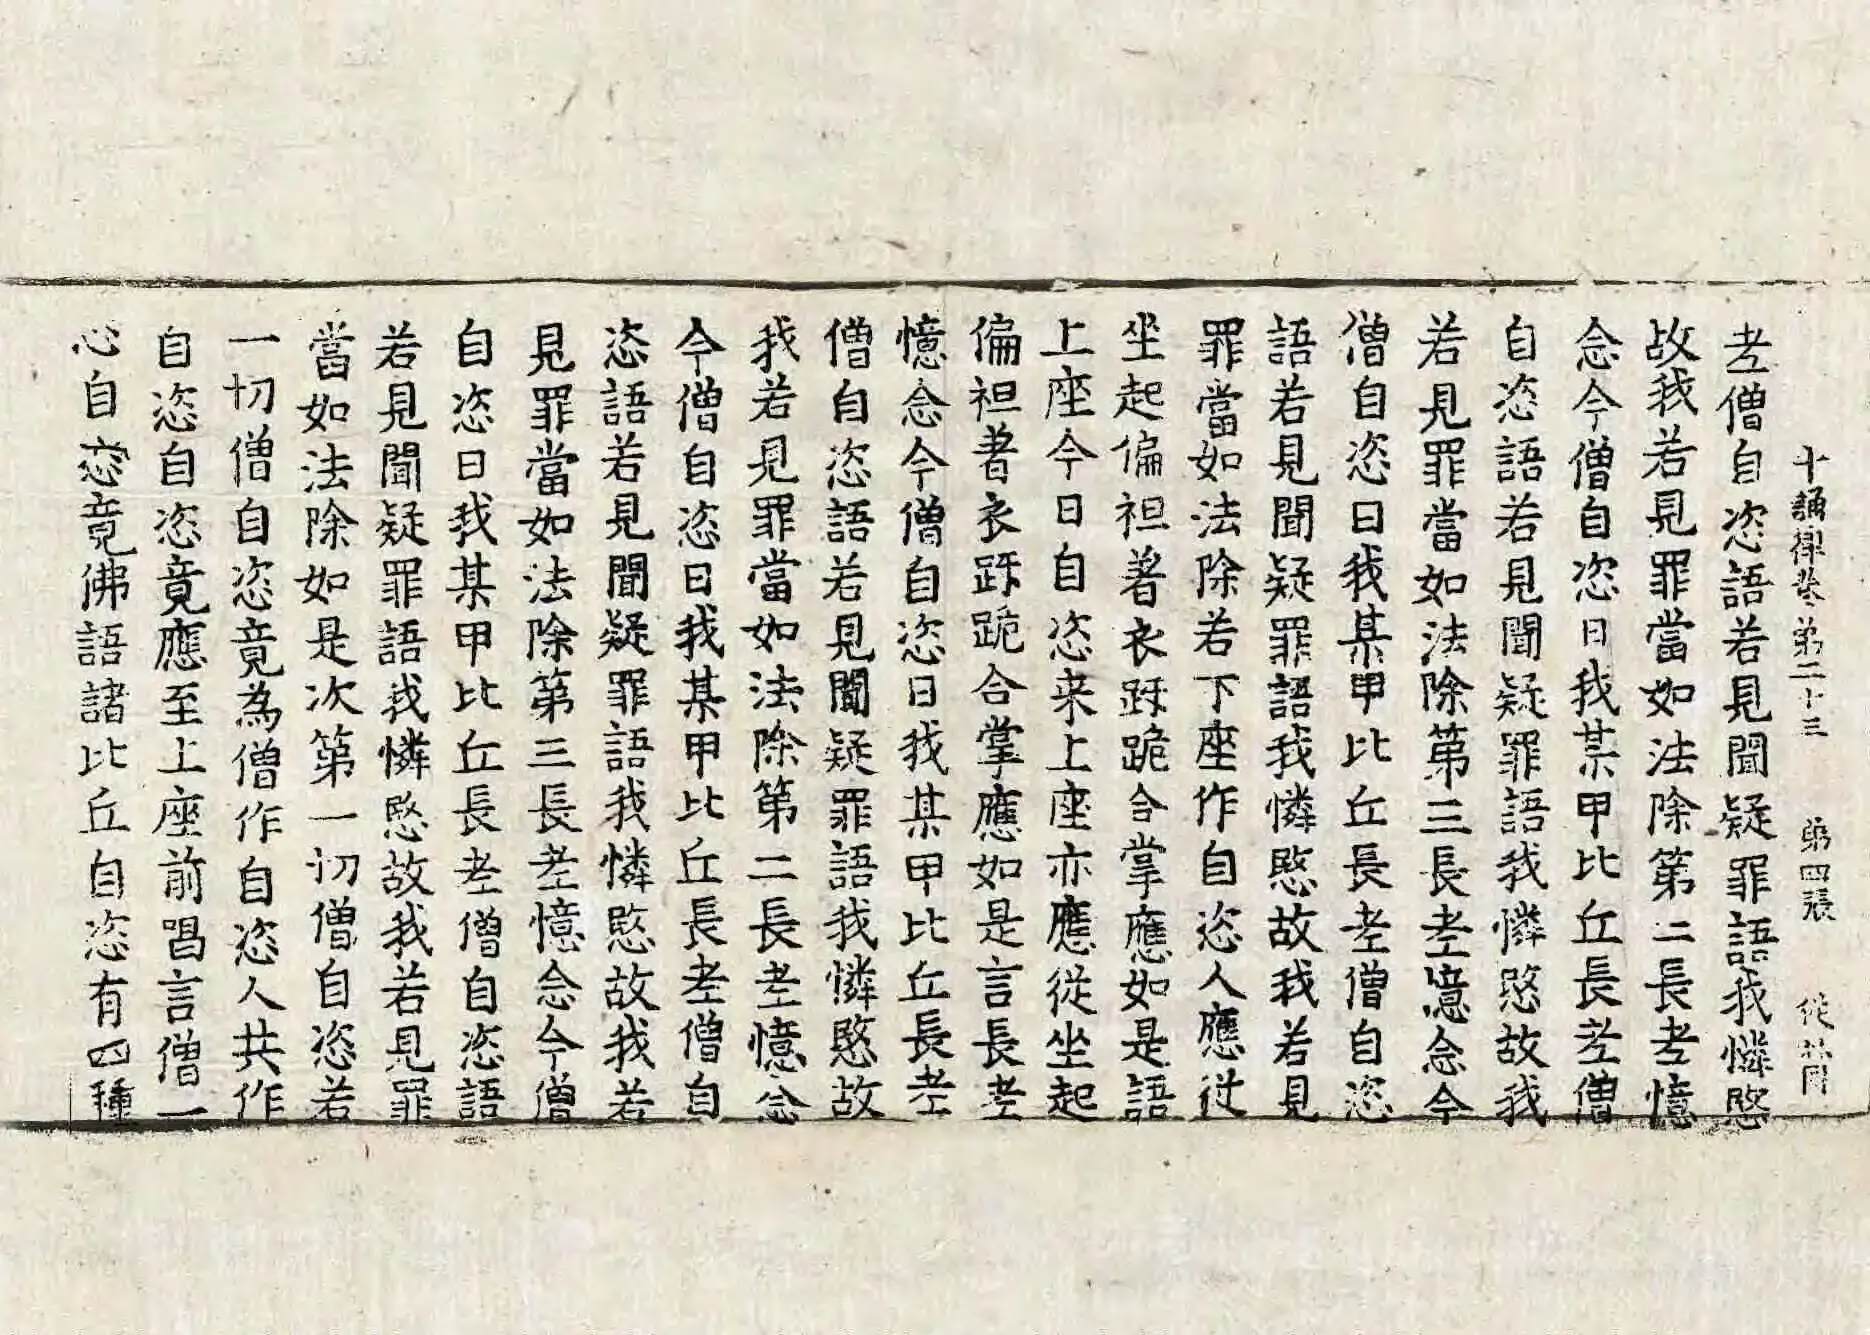 十誦律卷第二十三 第四張
老僧自恣語若見聞疑罪語我憐愍
故我若見罪當如法除第二長老憶
念今僧自恣日我某甲比丘長老僧
自恣語若見聞疑罪語我憐愍故我
若見罪當如法除第三長老憶念今
僧自恣日我某甲比丘長老僧自恣
語若見聞疑罪語我憐愍故我若見
罪當如法除若下座作自恣人應從
坐起偏袒著衣跪合掌應如是語
上座今日自恣来上座亦應從坐起
偏袒著衣跪合掌應如是言長老
憶念今僧自恣日我某甲比丘長老
僧自恣語若見聞疑罪語我憐愍故
我若見罪當如法除第二長老憶念
今僧自恣日我某甲比丘長老僧自
恣語若見聞疑罪語我憐愍故我若
見罪當如法除第三長老憶念今僧
自恣日我某甲比丘長老僧自恣語
若見聞疑罪語我憐愍故我若見罪
當如法除如是次第一切僧自恣若
一切僧自恣竟為僧作自恣人共作
自恣自恣竟應至上座前唱言僧一
心自恣竟佛語諸比丘自恣有四種